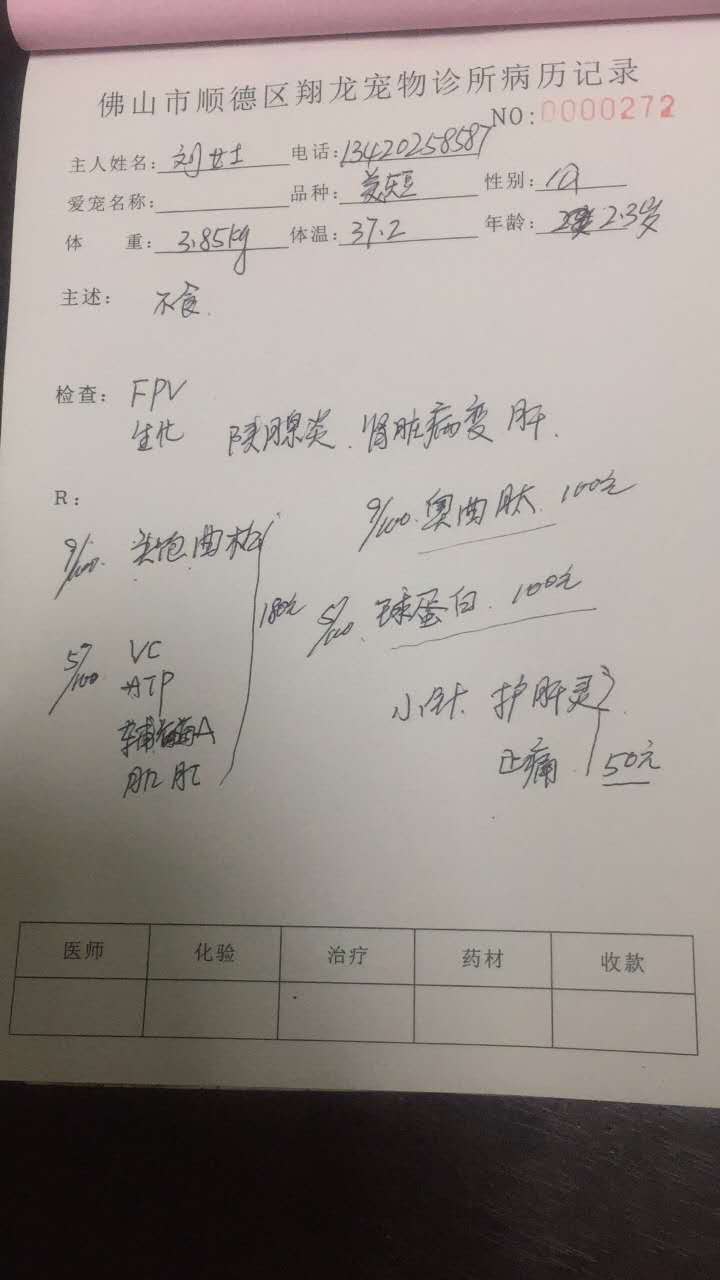 佛山市顺德区翔龙宠物诊所病历记录
NO:0000272
主人姓名: 刘女士 电话: 13420258587
爱宠名称: 品种: 美短 性别: 公
体 重: 3.85kg 体温: 37.2 年龄: 2.3岁
主述: 不食.
检查: FPV
生化 胰腺炎、肾脏病变 肝.
R:
9/100. 头孢曲松 9/100. 奥曲肽 100元
180元 5/100. 球蛋白. 100元
5/100 VC
ATP
辅酶A
肌苷
小针 护肝灵
止痛 50元
医师 化验 治疗 药材 收款